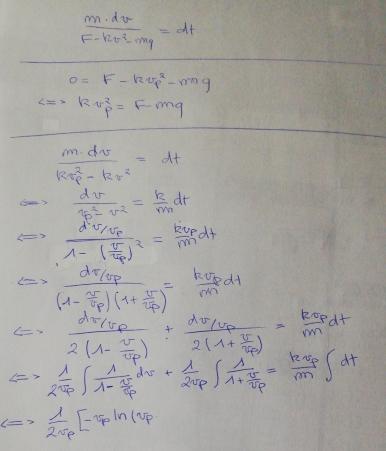 m.dv / F-kv²-mg = dt
0 = F - kv_p² - mg
<=> kv_p² = F-mg
m.dv / kv_p² - kv² = dt
<=> dv / v_p² - v² = k/m dt
<=> dv/v_p / 1-(v/v_p)² = kv_p/m dt
<=> dv/v_p / (1-v/v_p)(1+v/v_p) = kv_p/m dt
<=> dv/v_p / 2(1-v/v_p) + dv/v_p / 2(1+v/v_p) = kv_p/m dt
<=> 1/2v_p ∫ 1/1-v/v_p dv + 1/2v_p ∫ 1/1+v/v_p = kv_p/m ∫ dt
<=> 1/2v_p [-v_p ln(v_p